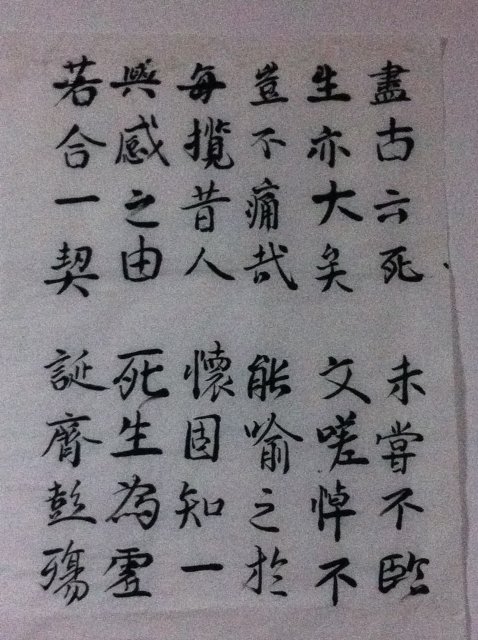 盡古云死
生亦大矣
豈不痛哉
每攬昔人
興感之由
若合一契
未嘗不臨
文嗟悼不
能喻之於
懷固知一
死生為虛
誕齊彭殤